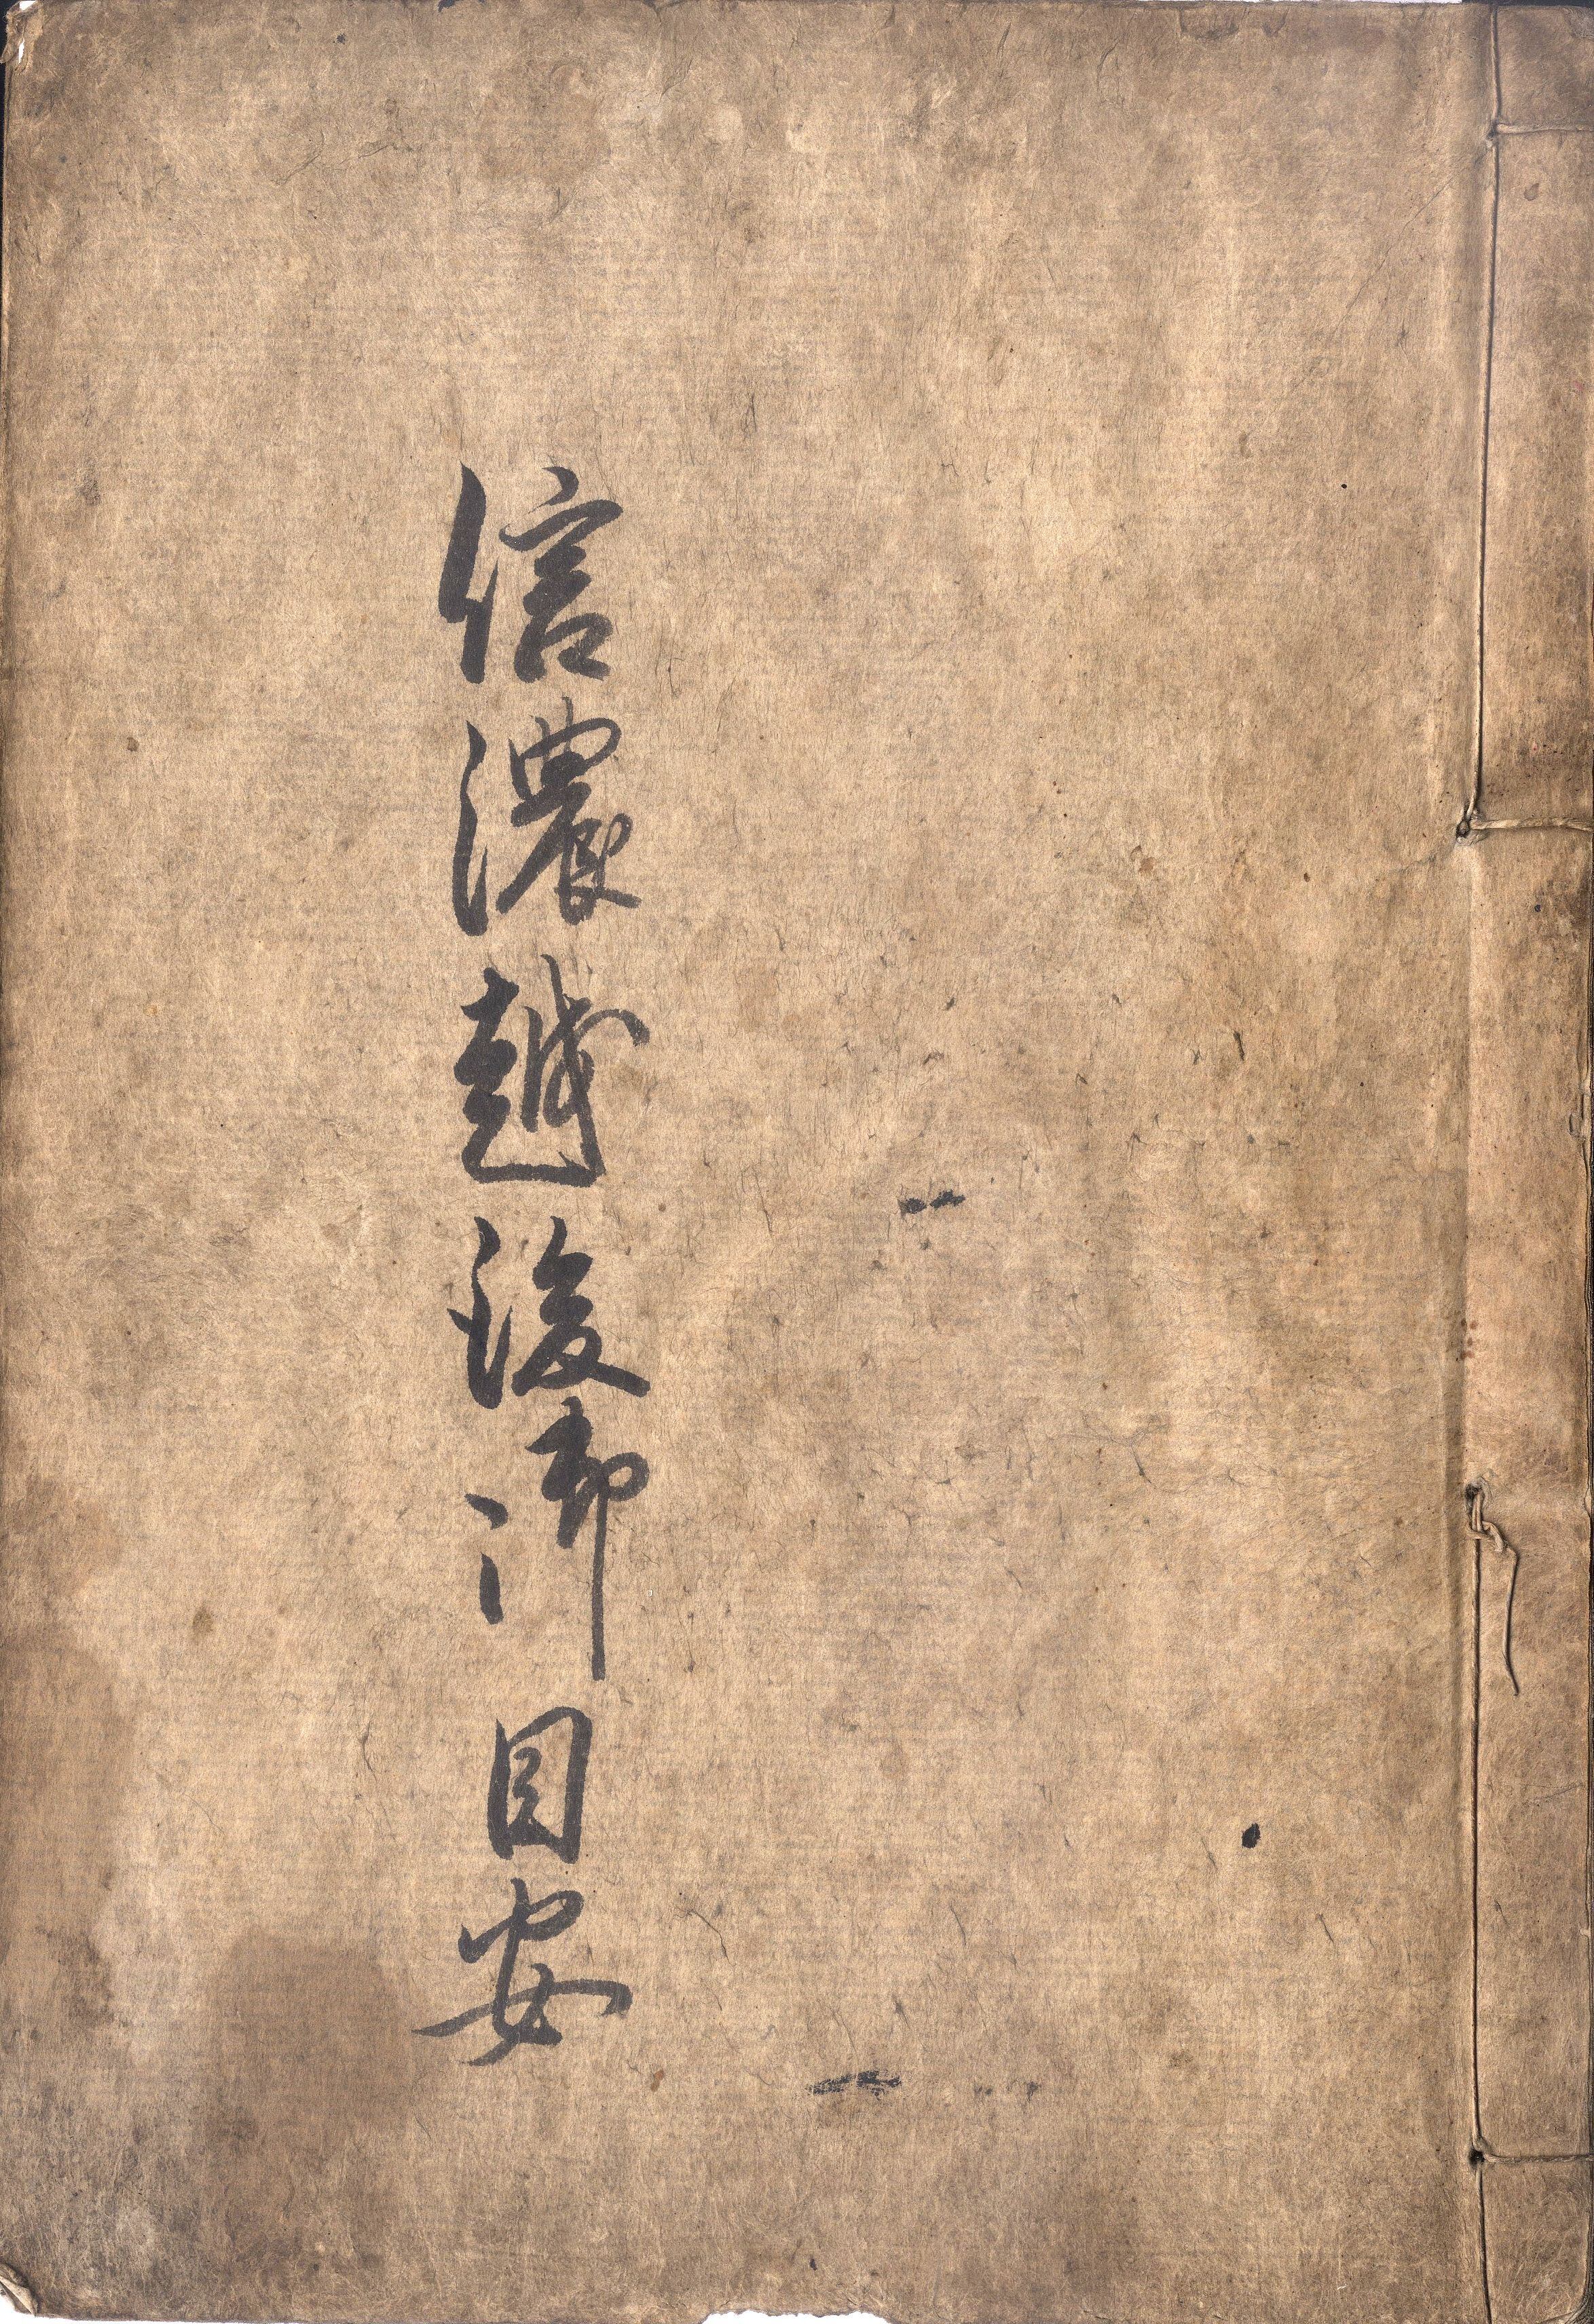 信濃越後御目安